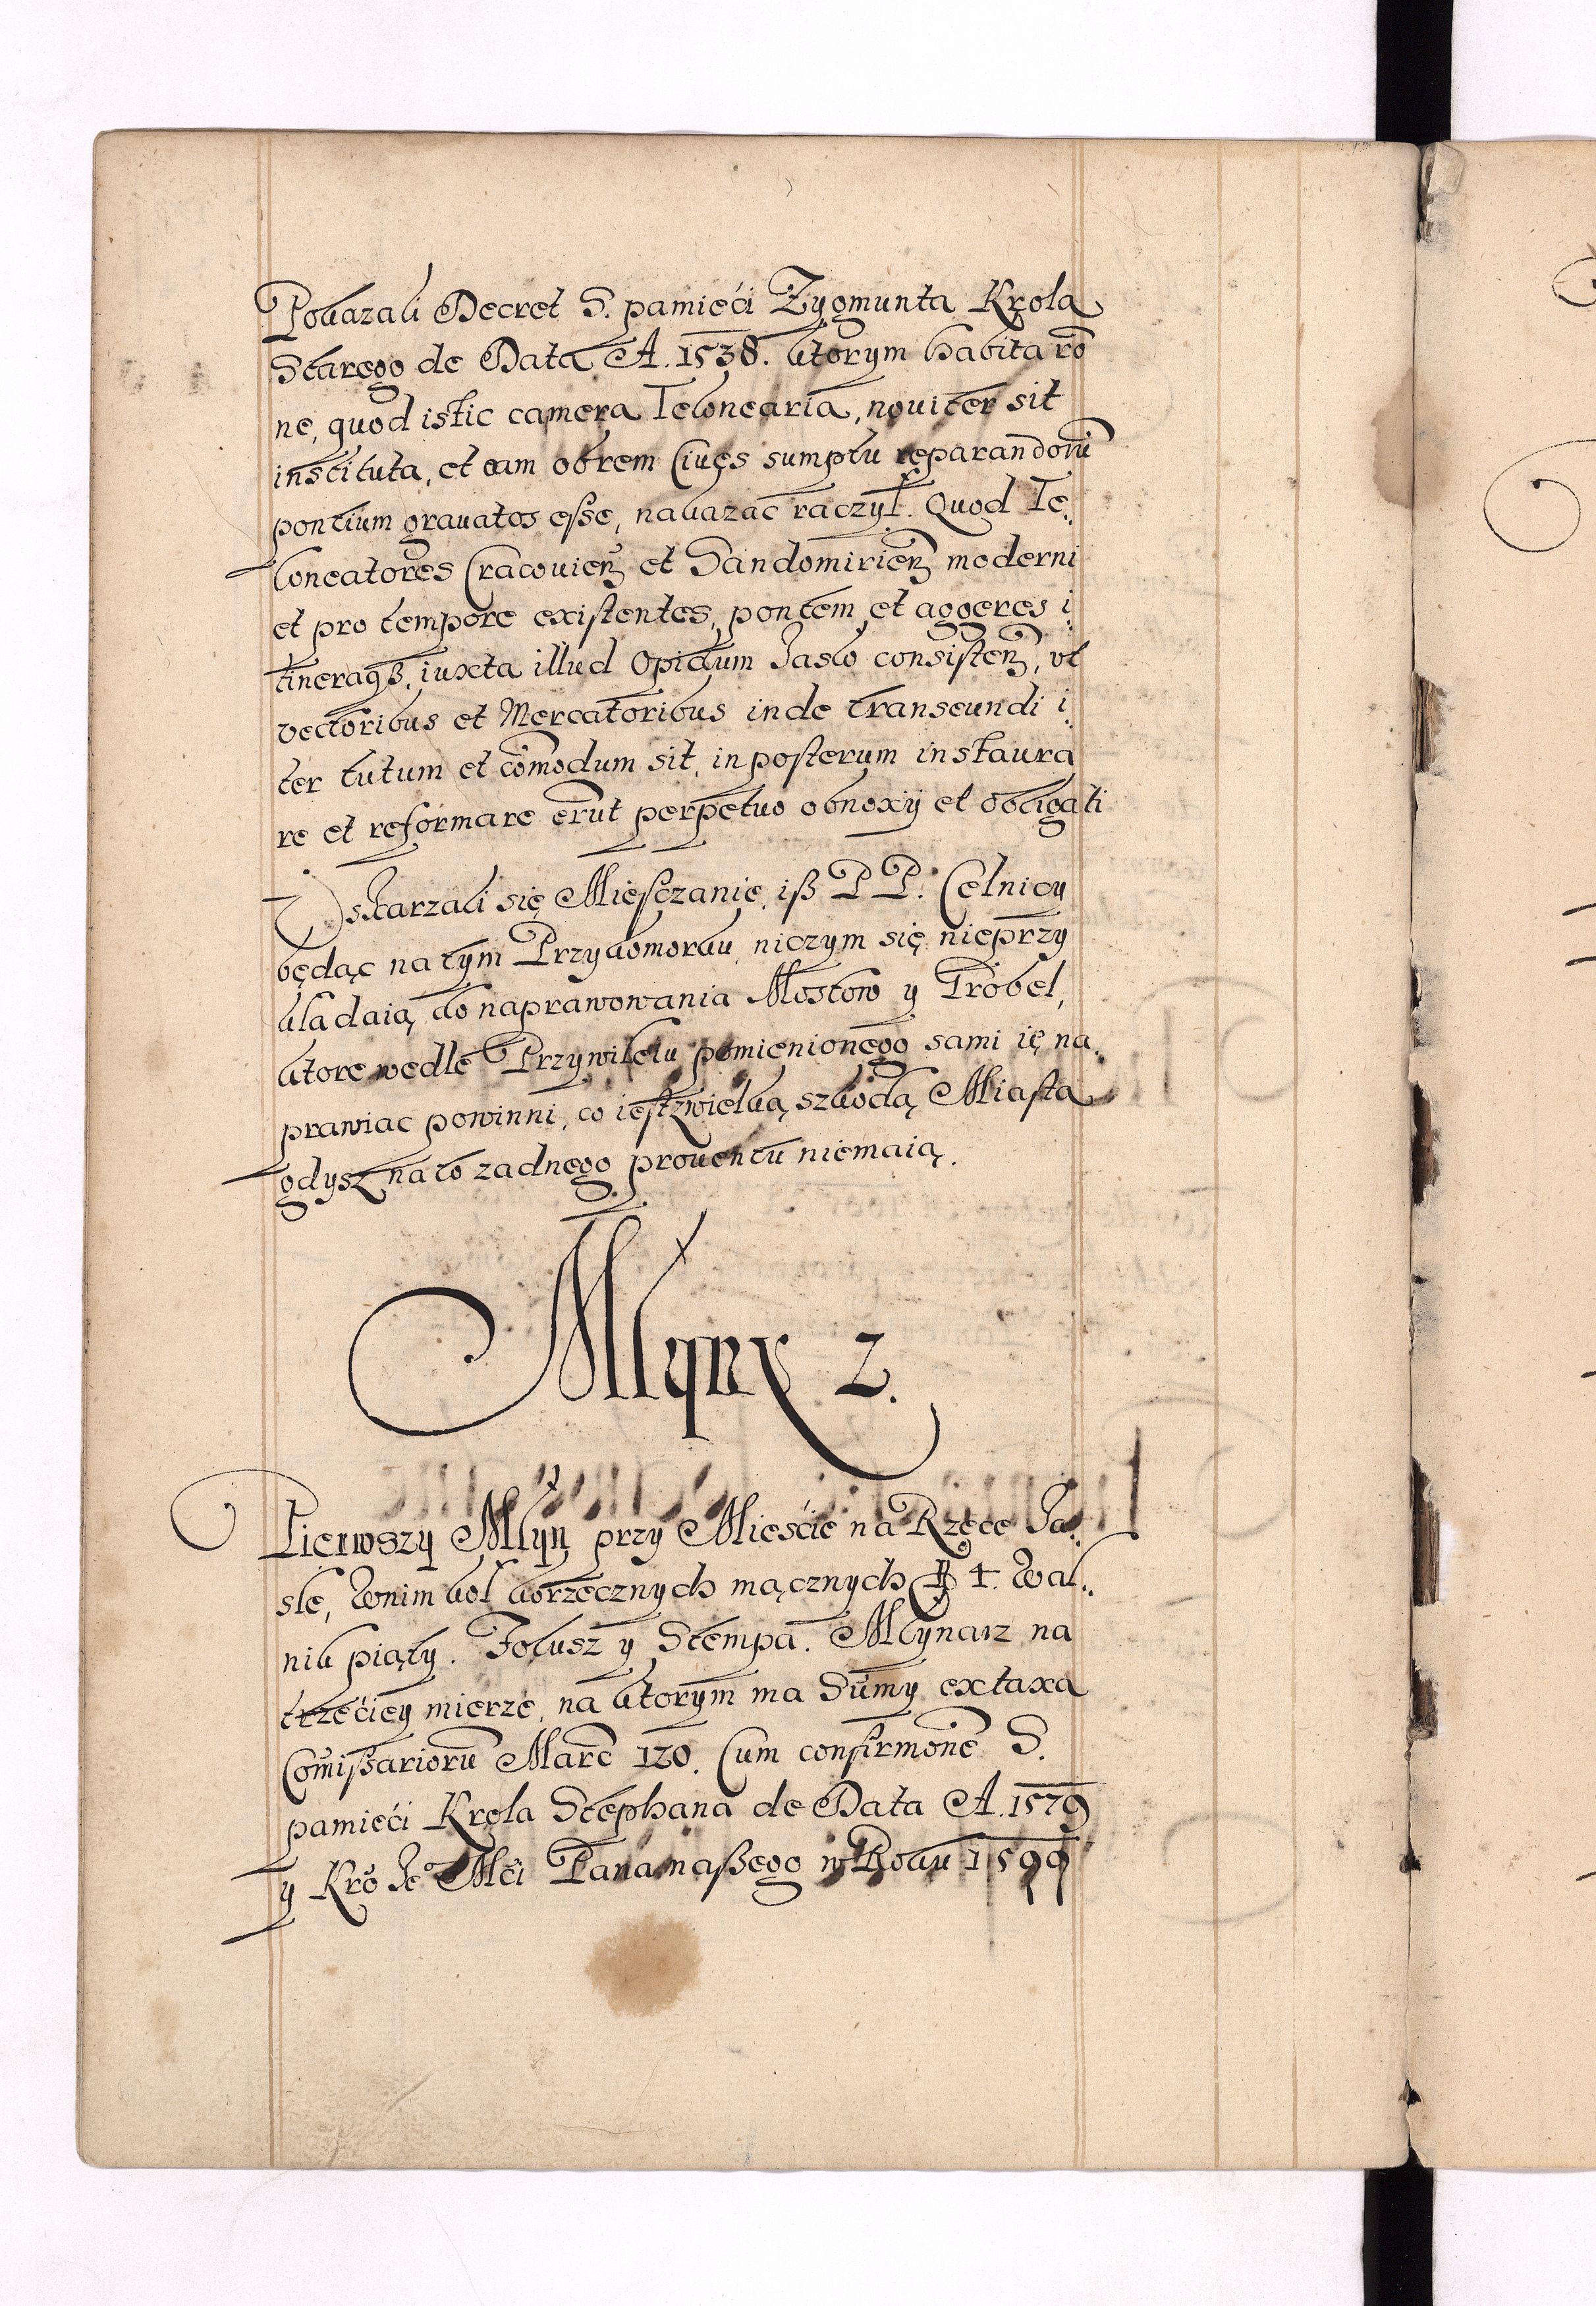 Pokazali Decret S. pamięći Zygmunta Krola
Starego de Data A. 1538. ktorym habita ro͞
ne, quod istic camera Telonearia, nouiter sit
instituta, et eam obrem Ciues sumptu reparandoru͞
pontium grauatos esse, nakazac raczył. Quod Te„
loneatores Cracouien̄ et Sandomirien̄ moderni
et pro tempore existentes, pontem et aggeres i„
tineraq₃, iuxta illud Opidum Jaslo consisten̄, vt
vectoribus et Mercatoribus inde transeundi i„
ter tutum et co͞modum sit, in posterum instaura
re et reformare eru͞t perpetuo obnoxij et obligati
Uskarzali się Miesczanie, iß P P. Celnicy
będąc na tym Przykomorku, niczym się nieprzy
kladaią do naprawowania Mostow y Grobel,
ktore wedle Przywileiu pomienionego sami ię na„
prawiac powinni, co iest zwielką szkodą Miasta
gdysz nato zadnego prouentu niemaią.
Młyny 2.
Pierwszy Młyn przy Mieście na Rzęce Ja„
sle, Wnim koł korzecznych mącznych N 4. Wal„
nik piąty. Folusz y Stempa. Mlynarz na
trzećiey mierze, na ktorym ma Su͞my extaxa
Co͞mißarioru͞ Marc 120. Cum confirmo͞ne S.
pamięći Krola Stephana de Data A. 1579
y Kro͞ Je° Mći Pana naßego w Roku 1599